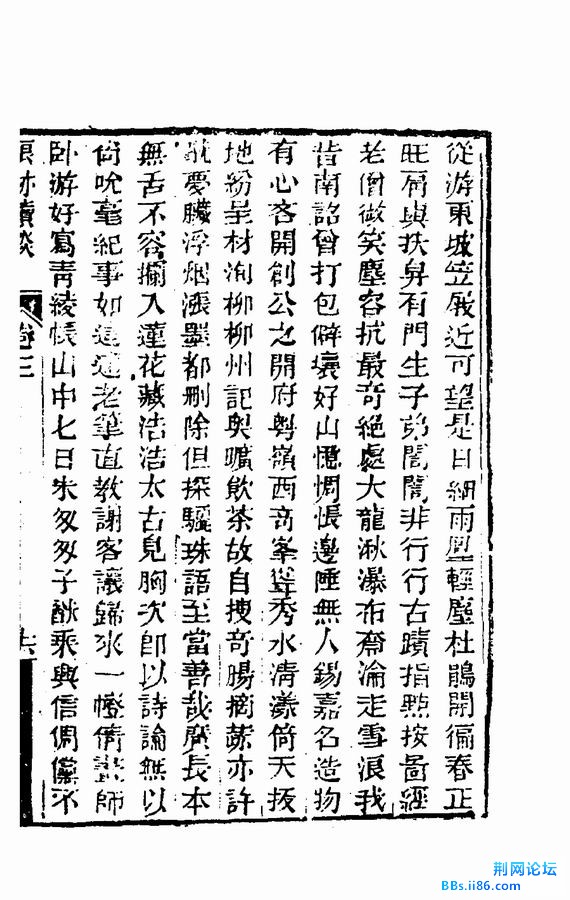 從游東坡笠屐近可望是日細雨壓輕塵杜鵑開徧春正
旺肩輿扶舁有門生子弟誾誾非行行古蹟指點按圖經
老僧微笑塵容抗最奇絕處大龍湫瀑布奫淪走雪浪我
昔南詔曾打包僻壤好山憁惆悵邊陲無人錫嘉名造物
有心客開創公之開府粵嶺西奇峯聳秀水清漾倚天拔
地紛呈材洵柳柳州記與曠飲茶故自搜奇腸摘蔬亦許
慶臟浮烟漲墨都刪除但探驪珠語至當善哉廣長本
無舌不容攔入蓮花藏浩浩太古皃胸次卽以詩論無以
尙吮毫紀事如老筆直教謝客讓歸來一燈倩禪師
臥游好寫靑綾帳山中七日朱匆匆子猷乘興信倜儻不
卷三
六
荆网论坛
BBs.ii86.com